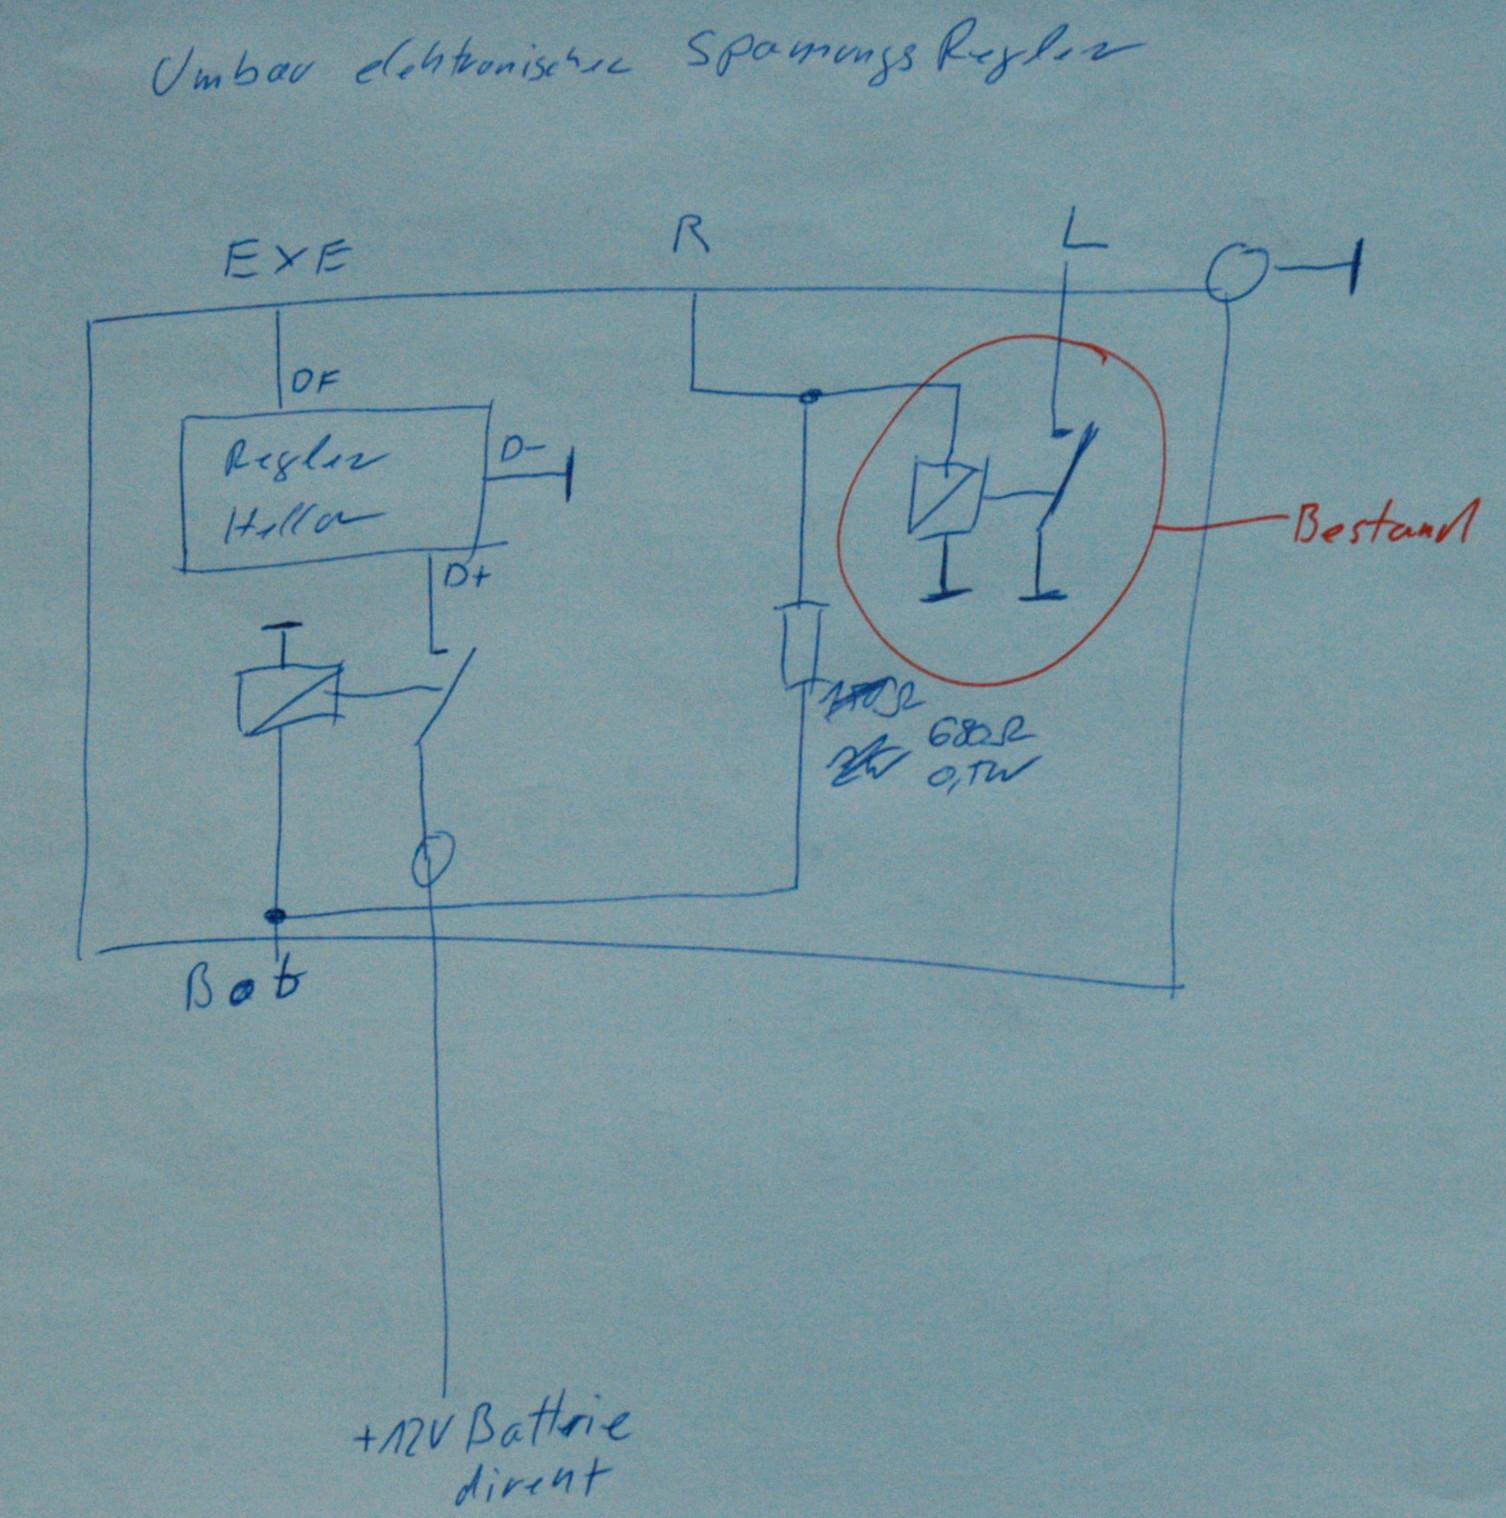 Umbau elektronischer Spannungs Regler
EXE
R
L
DF
Regler
Hella
D-
D+
Bestand
680Ω
0,5W
Bat
+12V Batterie
direkt